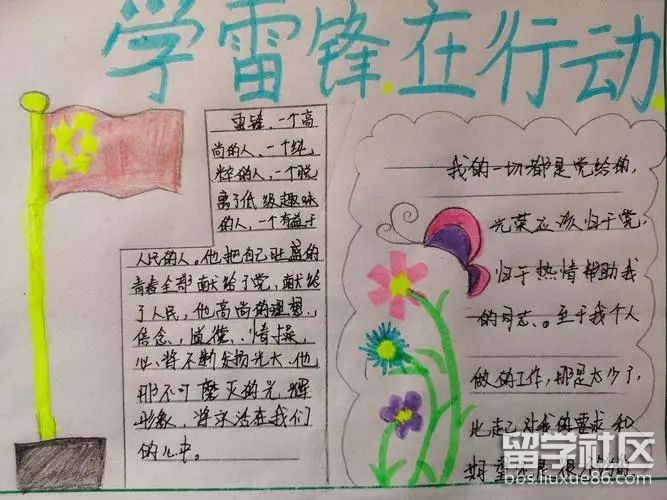 学雷锋在行动
雷锋，一个高
尚的人、一个纯
粹的人、一个脱
离了低级趣味
的人，一个有益于
人民的人。他把自己旺盛的
青春全部献给了党，献给
了人民，他高尚的理想、
信念、道德、情操，
必将不断发扬光大，他
那不可磨灭的光辉
形象，将永活在我们
的心中。
我的一切都是党给的，
光荣应该归于党，
归于热情帮助我
的同志。至于我个人
做的工作，那是太少了，
比起党对我的要求和
期望
留学社区
bbs.liuxue86.com